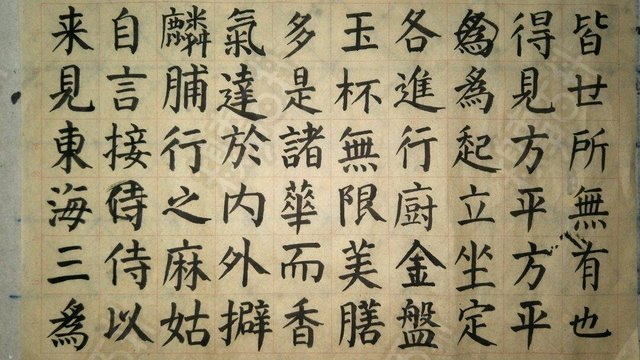 皆世所無有也
得見方平方平
為為起立坐定
各進行廚金盤
玉杯無限美膳
多是諸華而香
氣達於内外擗
麟脯行之麻姑
自言接侍侍以
来見東海三為